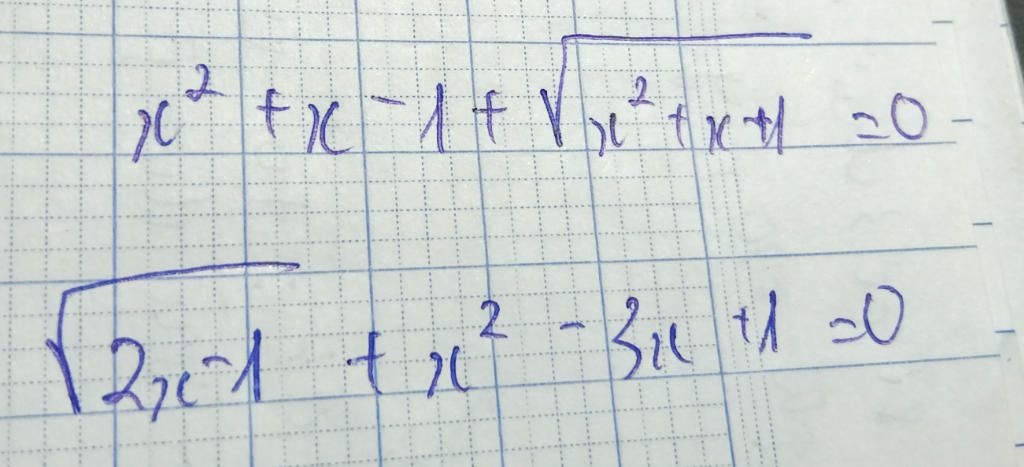 x² + x - 1 + √(x² + x + 1) = 0
√(2x - 1) + x² - 3x + 1 = 0